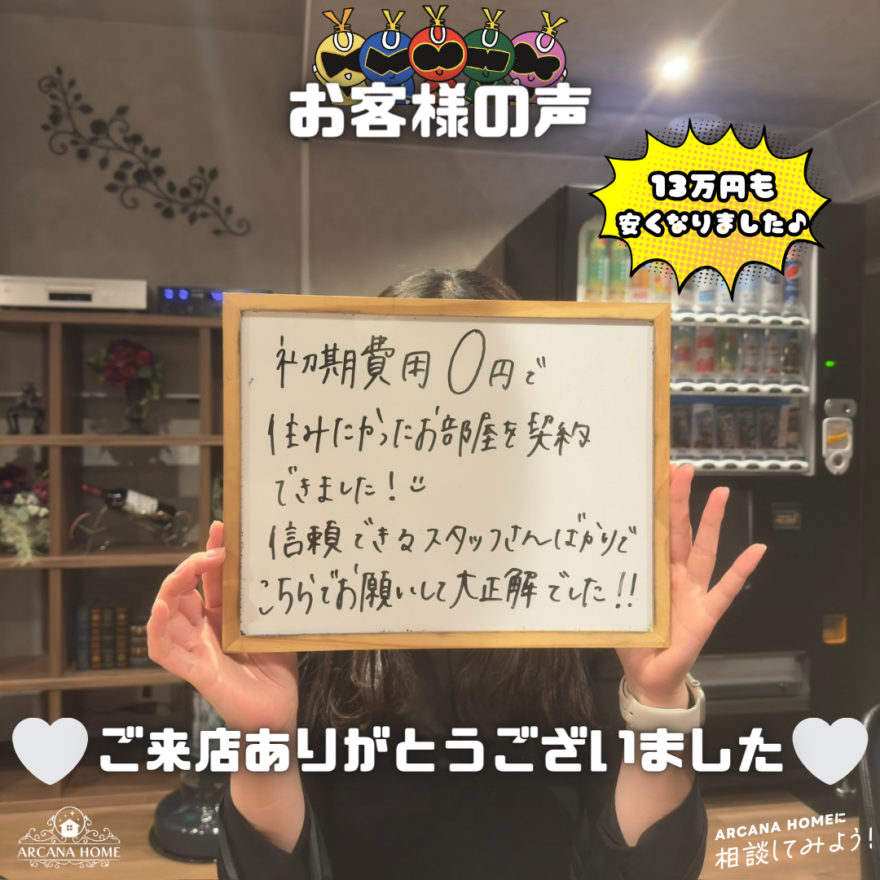 お客様の声
13万円も
安くなりました♪
初期費用0円で
住みたかったお部屋を契約
できました!
信頼できるスタッフさんばかりで
こちらでお願いして大正解でした!!
ご来店ありがとうございました
ARCANA HOME
ARCANA HOMEに
相談してみよう!